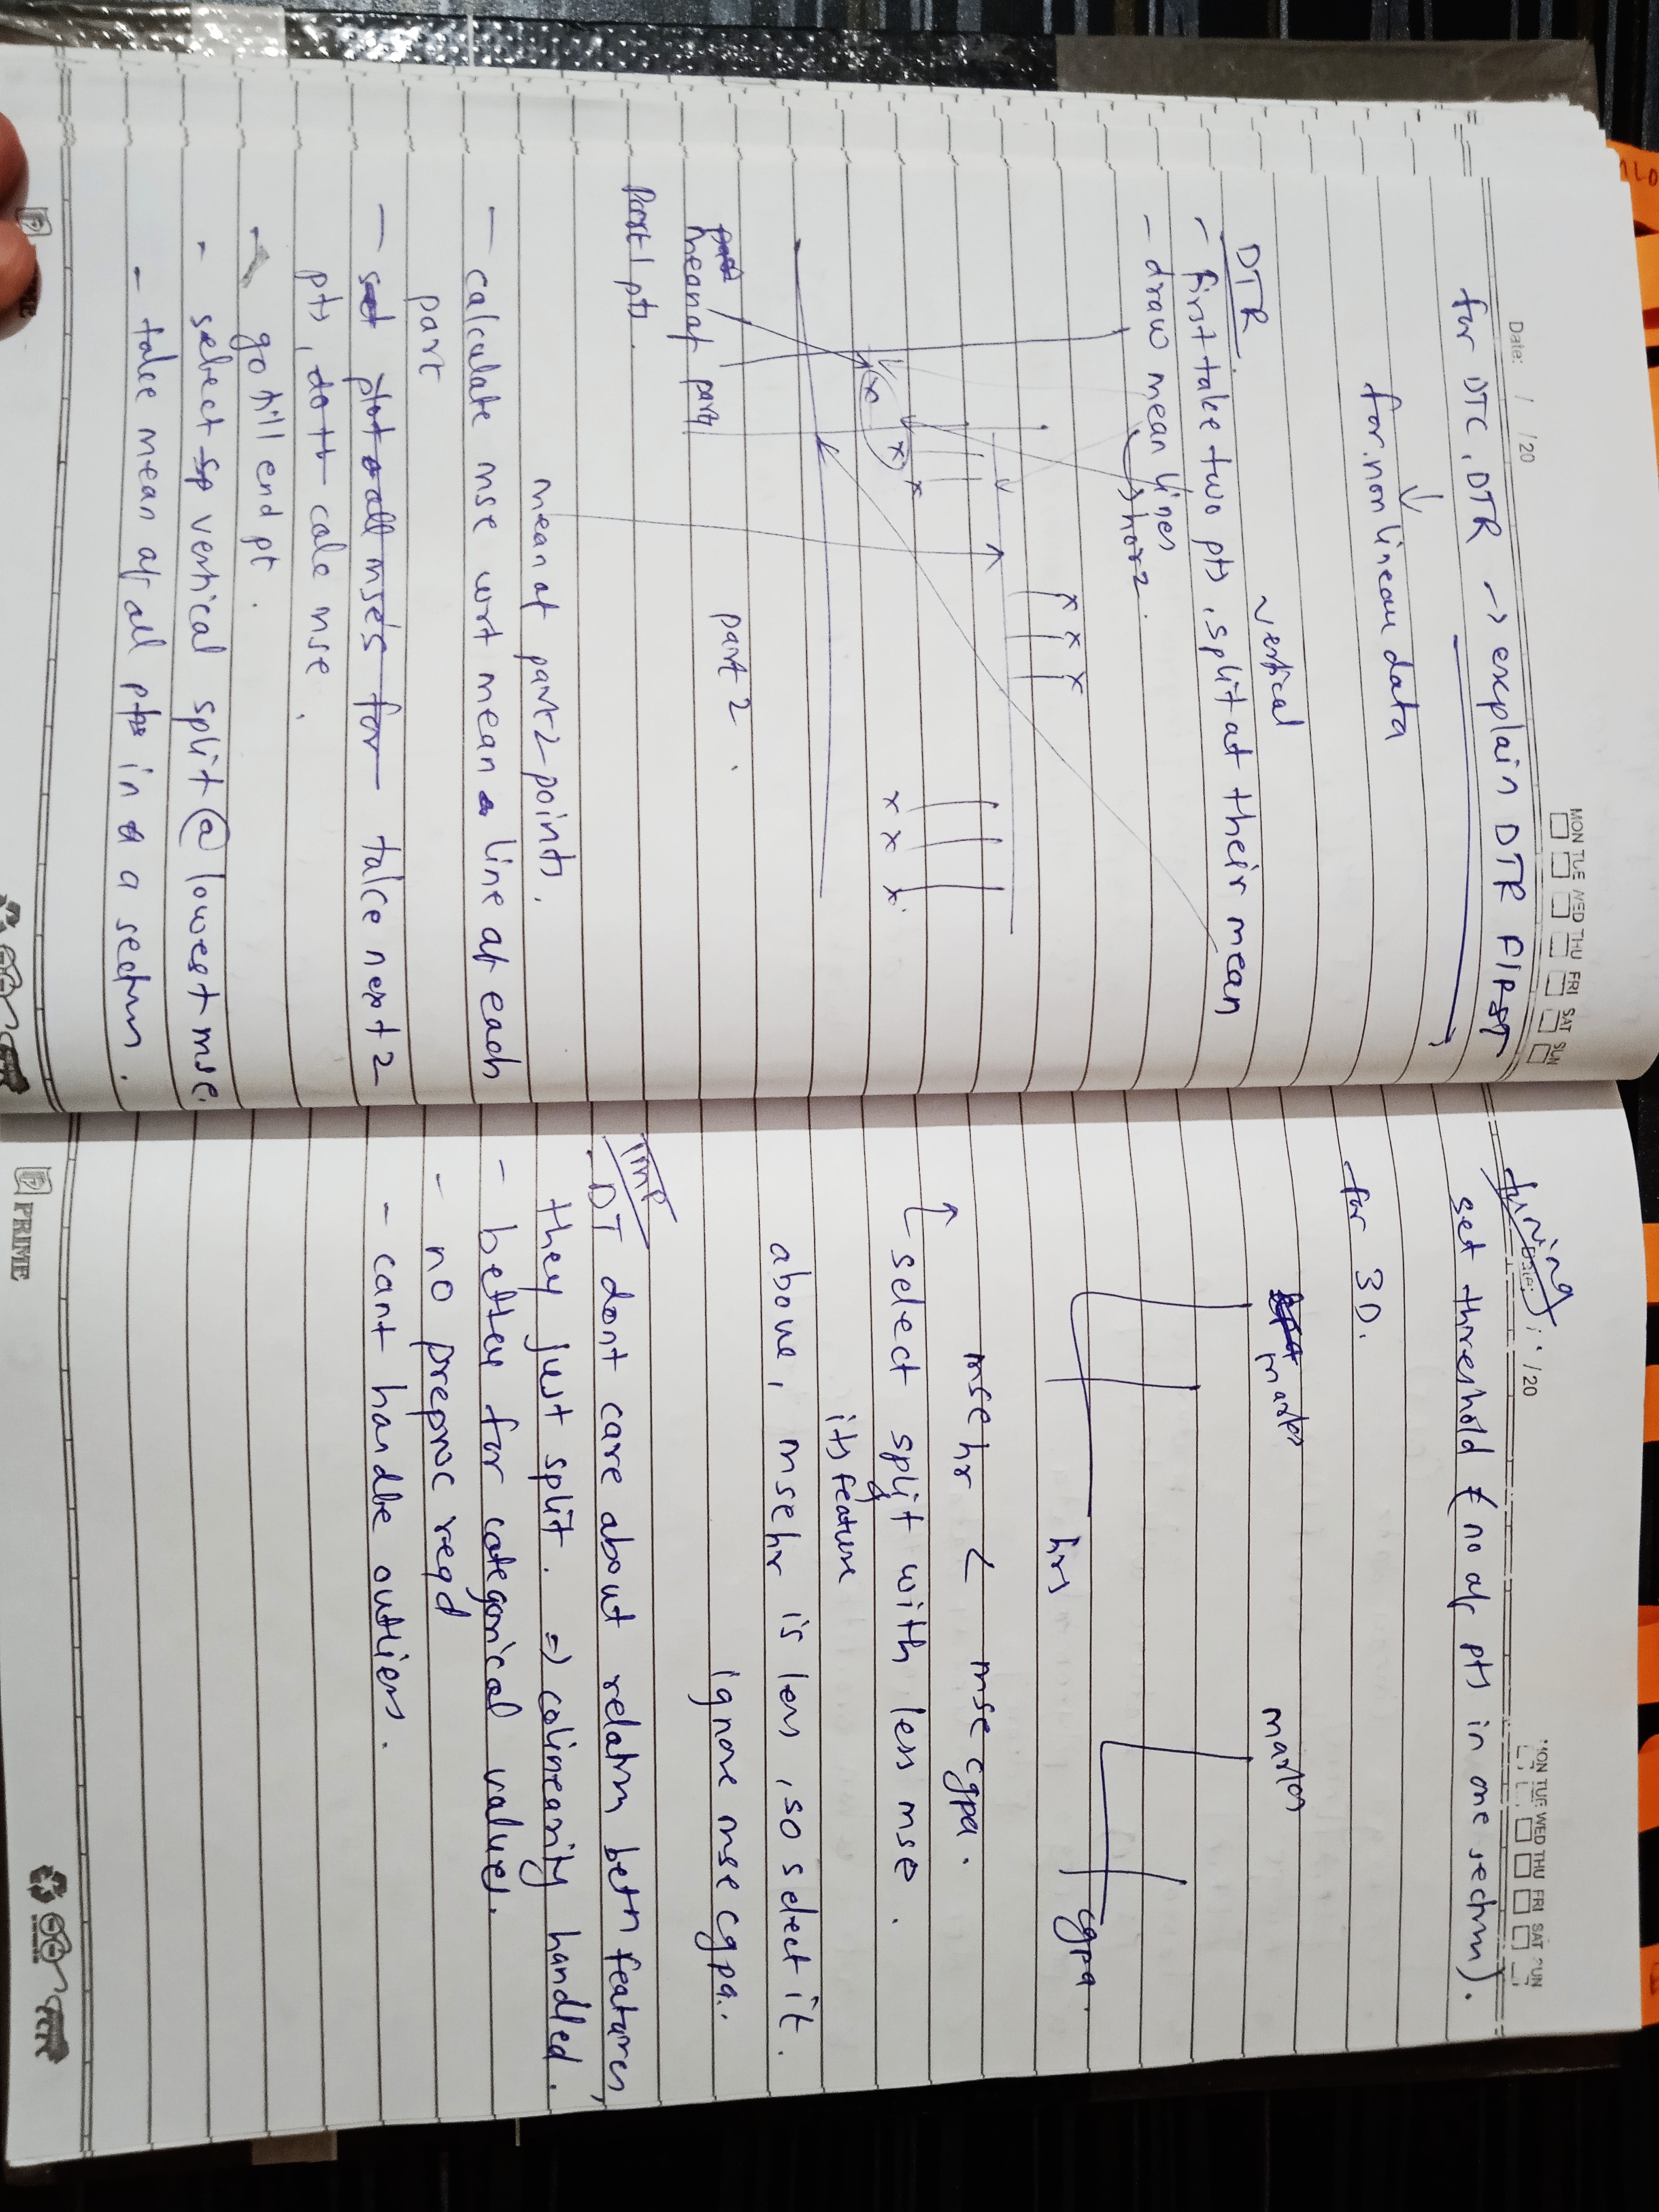 Date: / /20
MON TUE WED THU FRI SAT SUN
for DTC, DTR → explain DTR FIRST
for non linear data
vertical
DTR
- first take two pts, split at their mean
- draw mean lines
→ horz.
x x x
x x x
x x x
mean of part
part 1 pts.
part 2.
mean of part 2 points.
- calculate mse wrt mean line of each
part
- set plot all mses for take next 2
pts, do tt calc mse.
- go till end pt.
- select sp vertical split @ lowest mse.
- take mean of all pts in a a section.
PRIME
tuning:
Date: / /20
MON TUE WED THU FRI SAT SUN
set threshold (no of pts in one section).
for 3D.
marks
marks
hrs
cgpa.
mse hr < mse cgpa.
↳ select split with less mse.
its feature
above, mse hr is less, so select it.
ignore mse cgpa.
imp
- DT dont care about relation betn features,
they just split. => colinearity handled.
- better for categorical values.
- no preproc reqd
- cant handle outliers.
PRIME